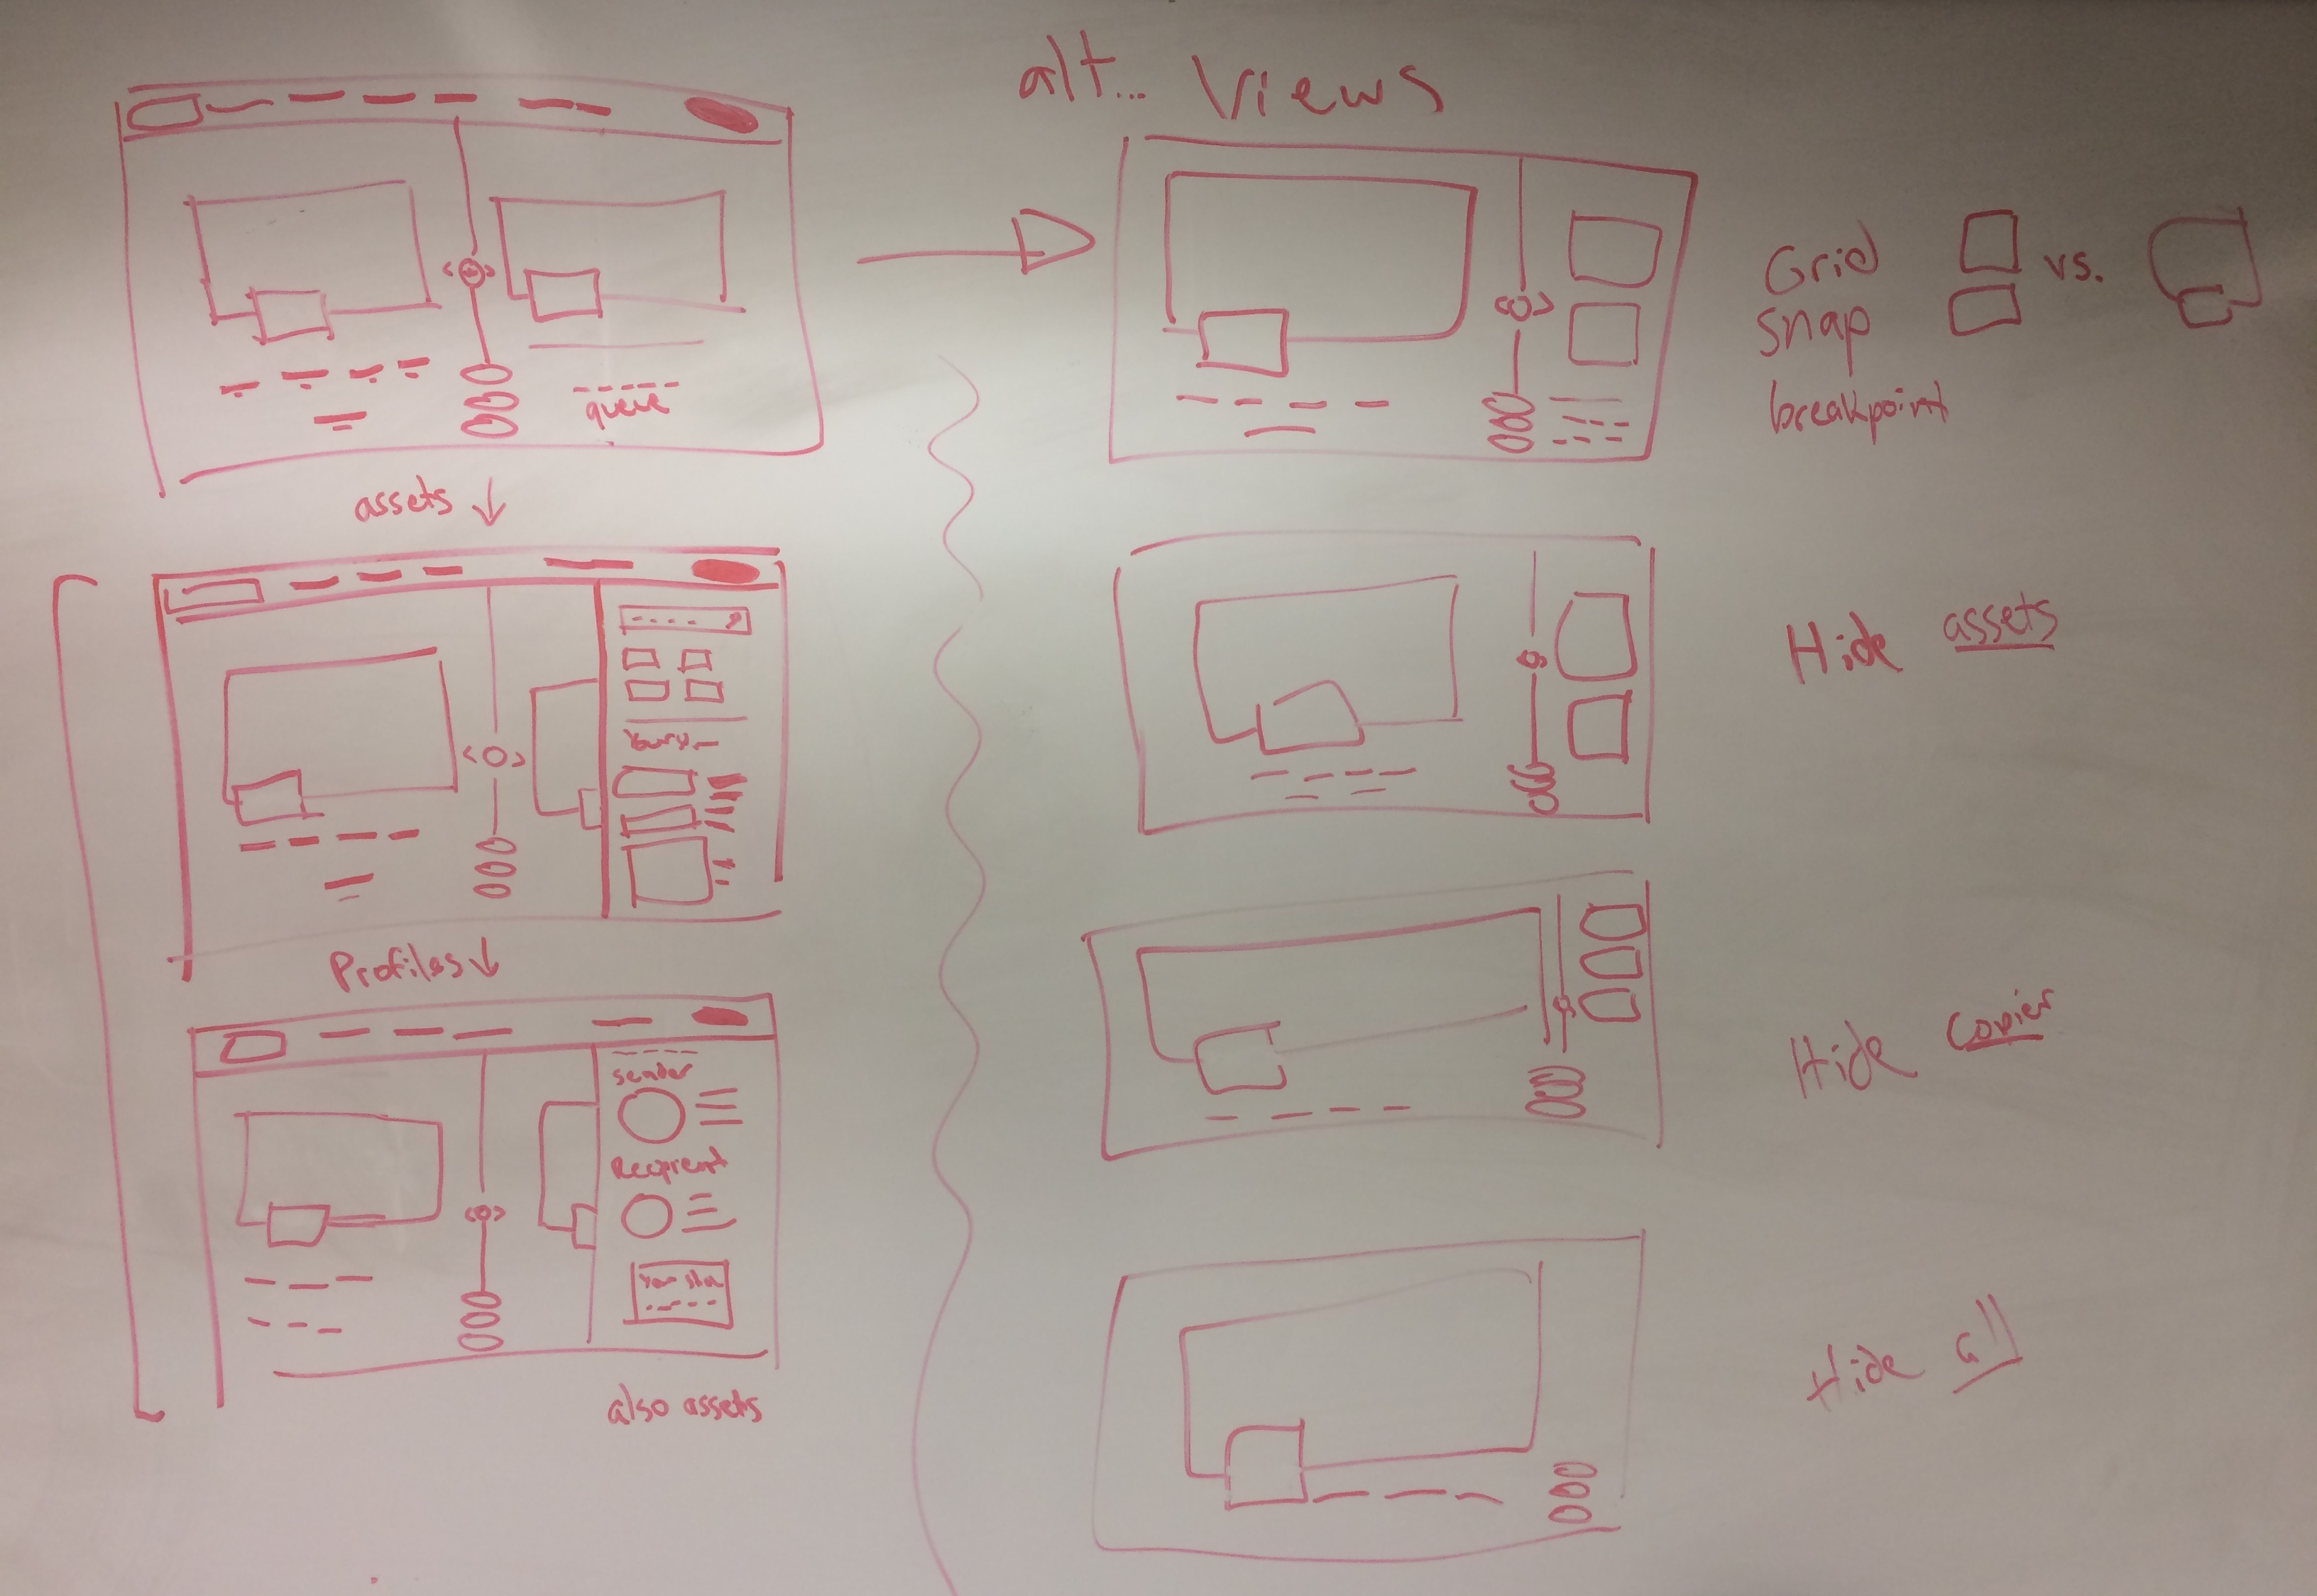 alt... Views
queue
assets
Profiles
sender
Recipient
also assets
Grid
vs.
snap
breakpoint
Hide assets
Hide
Hide all